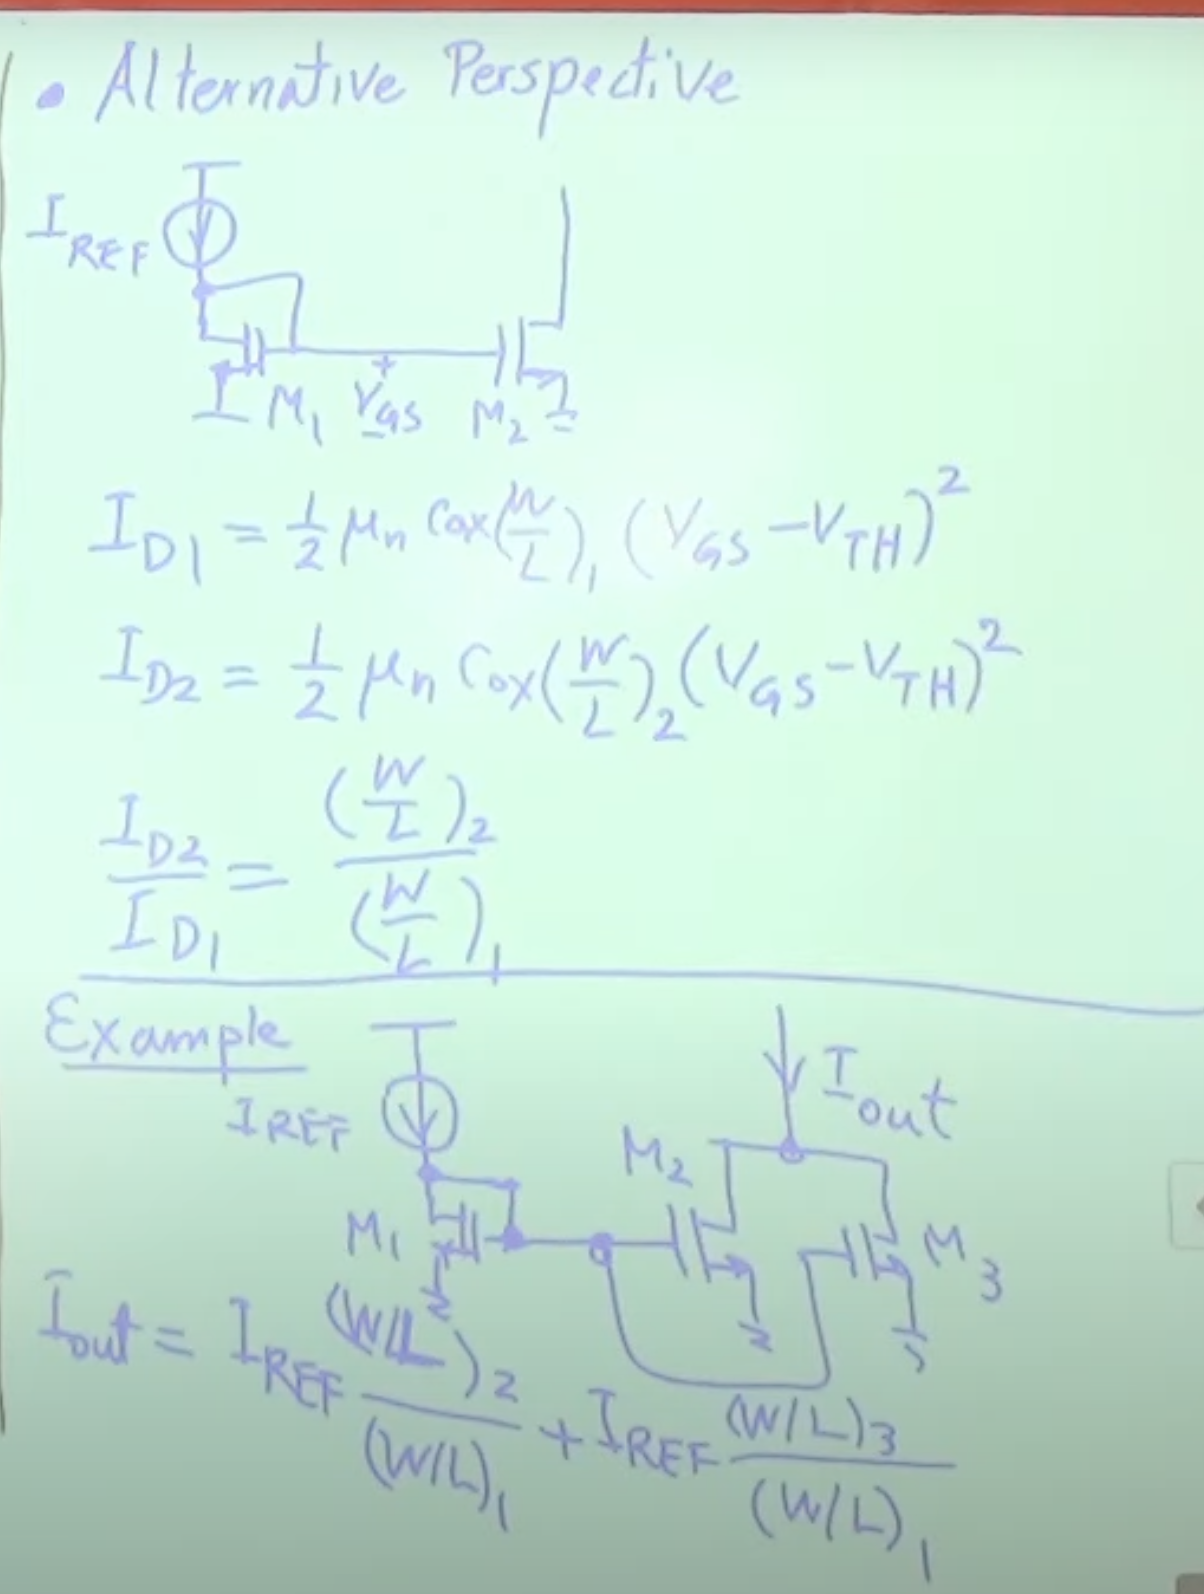 • Alternative Perspective
I_REF
M_1 + V_GS - M_2
I_D1 = 1/2 μ_n C_ox (W/L)_1 (V_GS - V_TH)^2
I_D2 = 1/2 μ_n C_ox (W/L)_2 (V_GS - V_TH)^2
I_D2 / I_D1 = (W/L)_2 / (W/L)_1
Example
I_REF
I_out
M_2
M_1
M_3
I_out = I_REF (W/L)_2 / (W/L)_1 + I_REF (W/L)_3 / (W/L)_1